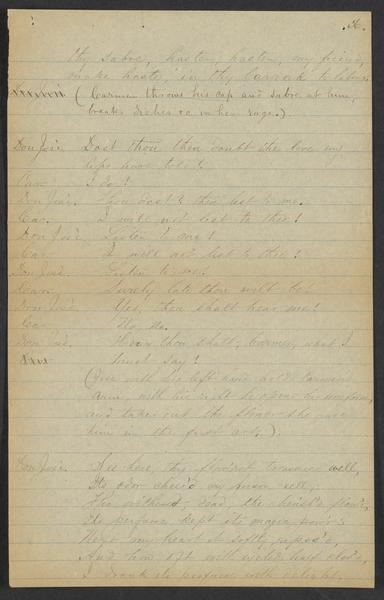 thy sabre, hasten, hasten, my friend,
make haste, in thy barrack to
(Carmen throws his cap and sabre at him,
breaks dishes &c in her rage.)
Don José. Dost thou then doubt the love my
lips have told?
Car. I do!
Don José. Thou dost? then list to me.
Car. I will not list to thee!
Don José. Listen to me!
Car. I will not list to thee!
Don José. Listen to me!
Carm. Surely late thou wilt be!
Don José. Yes, thou shalt hear me!
Car. No, no.
Don José. Hear thou shalt, Carmen, what I
must say!
(José with his left hand holds Carmen's
arm, with his right he opens his uniform,
and takes out the flower she gave
him in the first act.)
Don José. See here, thy flow'ret treasured well,
Its odor cheer'd my prison cell,
Tho' withered, dead, the cherish'd flow'r,
Its perfume kept its magic pow'r;
Next my heart it softly repos'd,
And how oft with eyelids half clos'd,
I drank its perfume with delight,